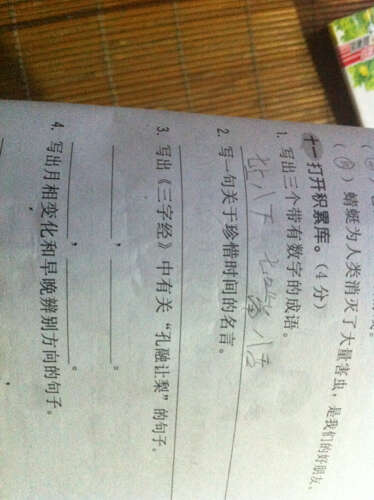 ）蜻蜓为人类消灭了大量害虫，是我们的好朋友。
十一 打开积累库。（4 分）
1. 写出三个带有数字的成语。
七上八下
2. 写一句关于珍惜时间的名言。
3. 写出《三字经》中有关“孔融让梨”的句子。
，。
4. 写出月相变化和早晚辨别方向的句子。